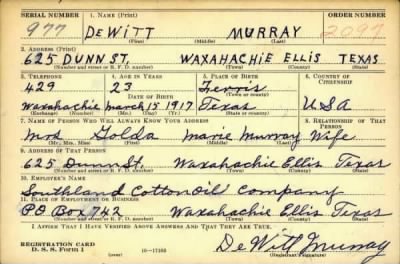 SERIAL NUMBER 1. NAME (Print) ORDER NUMBER
977 DEWITT MURRAY 2097
(First) (Middle) (Last)
2. ADDRESS (Print)
625 DUNN ST. WAXAHACHIE ELLIS TEXAS
(Number and street or R. F. D. number) (Town) (County) (State)
3. TELEPHONE 4. AGE IN YEARS 5. PLACE OF BIRTH 6. COUNTRY OF CITIZENSHIP
429 23 Ferris
DATE OF BIRTH (Town or county)
Waxahachie march 15 1917 Texas USA
(Exchange) (Number) (Mo.) (Day) (Yr.) (State or country)
7. NAME OF PERSON WHO WILL ALWAYS KNOW YOUR ADDRESS 8. RELATIONSHIP OF THAT PERSON
Mrs Golda Marie Murray Wife
(Mr., Mrs., Miss) (First) (Middle) (Last)
9. ADDRESS OF THAT PERSON
625 Dunn St. Waxahachie Ellis Texas
(Number and street or R. F. D. number) (Town) (County) (State)
10. EMPLOYER'S NAME
Southland Cotton Oil Company
11. PLACE OF EMPLOYMENT OR BUSINESS
PO Box 742 Waxahachie Ellis Texas
(Number and street or R. F. D. number) (Town) (County) (State)
I AFFIRM THAT I HAVE VERIFIED ABOVE ANSWERS AND THAT THEY ARE TRUE.
REGISTRATION CARD
D. S. S. Form 1 (over) 16—17105
DeWitt Murray
(Registrant's signature)